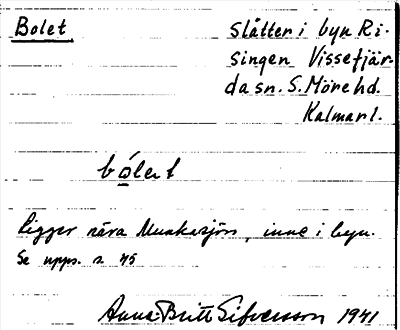 Bolet
slåtter i byn Ri-
singen Vissefjär-
da sn. S. Möre hd.
Kalmar l.
bólet
Ligger nära Munkasjön, inne i byn.
Se upps. s 45
Anna-Britt Sifversson 1941